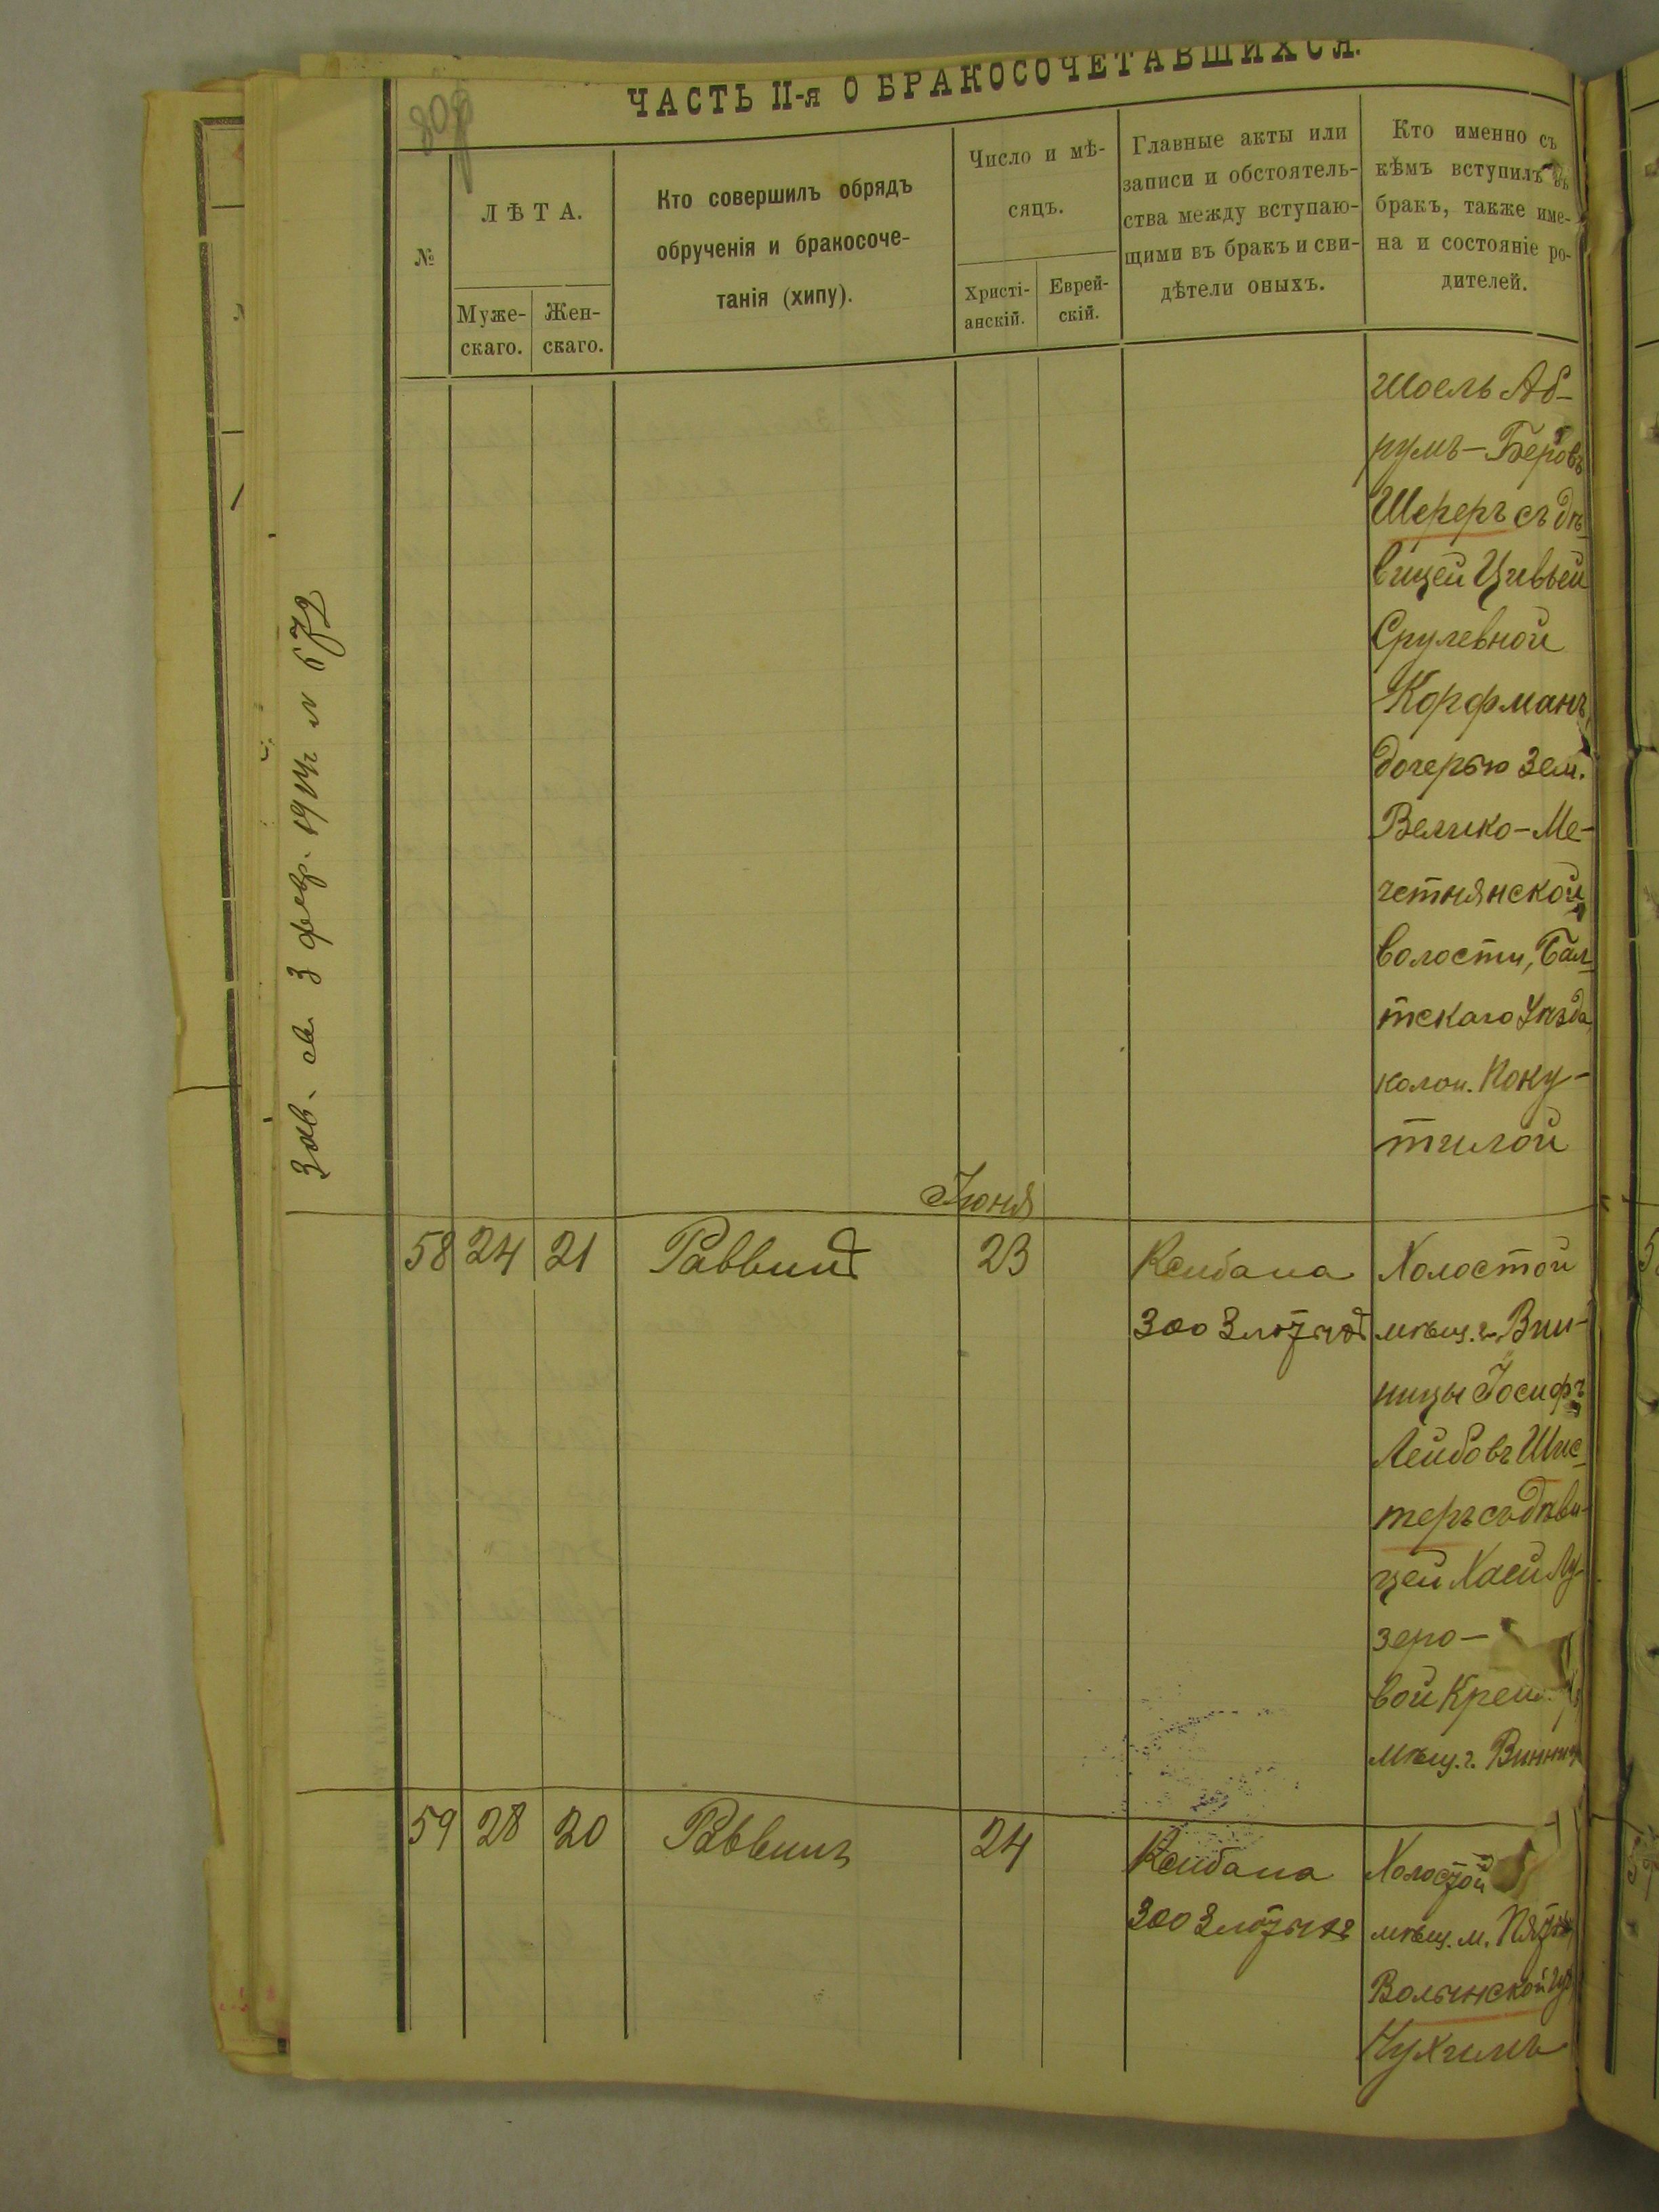 ЧАСТЬ II-я О БРАКОСОЧЕТАВШИХСЯ.
№
ЛѢТА.
Муже-
скаго.
Жен-
скаго.
Кто совершилъ обрядъ
обрученія и бракосоче-
танія (хипу).
Число и мѣ-
сяцъ.
Христі-
анскій.
Еврей-
скій.
Главные акты или
записи и обстоятель-
ства между вступаю-
щими въ бракъ и сви-
дѣтели оныхъ.
Кто именно съ
кѣмъ вступилъ въ
бракъ, также име-
на и состояніе ро-
дителей.
Шоель Аб-
румъ-Беровъ
Шереръ съ дѣ-
вицей Цивьей
Срулевной
Корфманъ,
дочерью зем.
Велико-Ме-
четнянской
волости, Бал-
тскаго Уѣзда
колон. Поку-
тилой
3 февр. 1914 г. № 672
Іюня
58 24 21 Раввинъ 23
Ксибана
300 Злотыхъ
Холостой
мѣщ. г. Вин-
ницы Іосифъ
Лейбовъ Шис-
теръ съ дѣви-
цей Хаей Лу-
зеро-
вой
мѣщ. г. Винниц
59 28 20 Раввинъ 24
Ксибана
300 Злотыхъ
Холостой
мѣщ. м.
Волынской губ.
Нухимъ